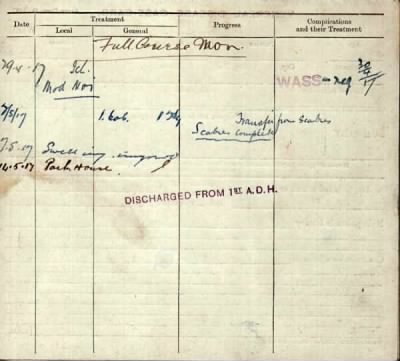 Treatment
Complications
and their Treatment
Date
Local
General
Progress
Full Course Mon
29.4.17
WASS - neg 30/4/17
Mod Nos
7/5/17
Transfer from Scabies
Scabies Complete
7.5.17 Swelling
14.5.17 Park House.
DISCHARGED FROM 1ST A.D.H.